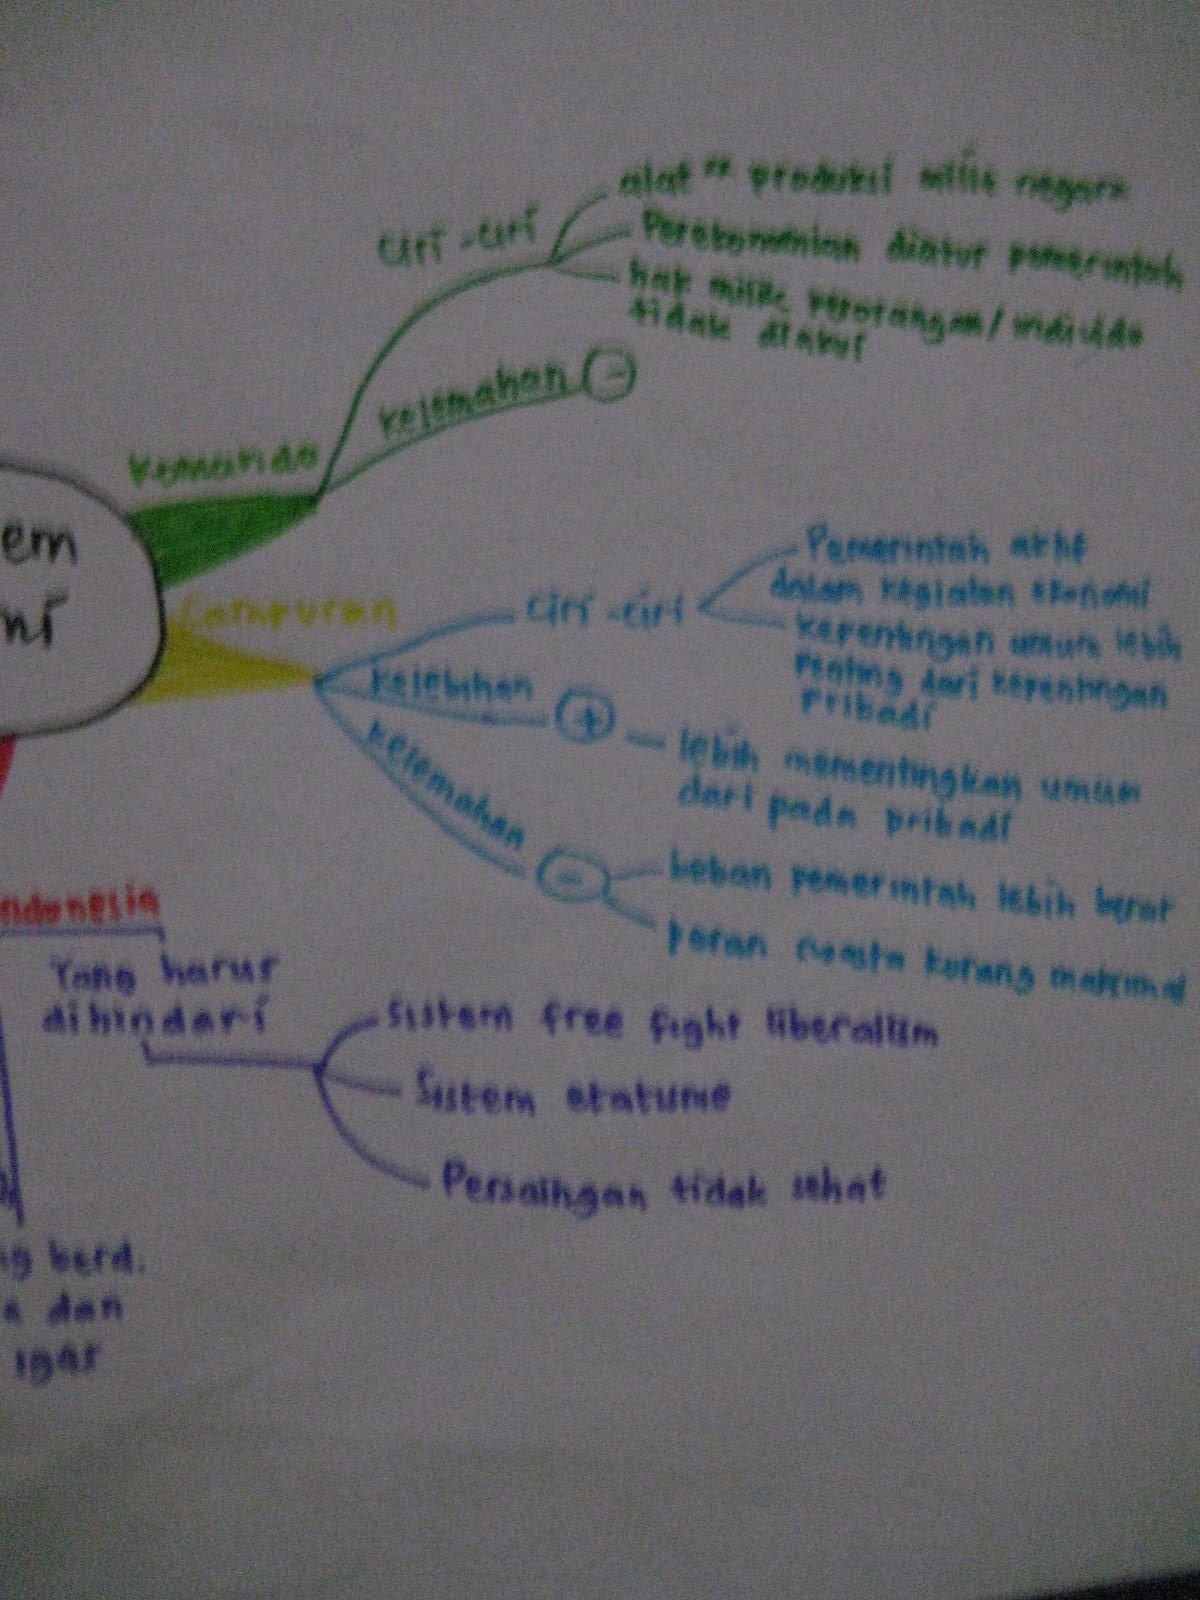 ciri-ciri
alat" produksi milik negara
Perekonomian diatur pemerintah
hak milik perorangan/individu
tidak diakui
kelemahan -
Komando
em
mi
Campuran
ciri-ciri
Pemerintah aktif
dalam kegiatan ekonomi
kepentingan umum lebih
penting dari kepentingan
pribadi
kelebihan +
lebih mementingkan umum
dari pada pribadi
kelemahan -
beban pemerintah lebih berat
peran swasta kurang maksimal
ndonesia
Yang harus
dihindari
Sistem free fight liberalism
Sistem etatisme
Persaingan tidak sehat
ng berd.
a dan